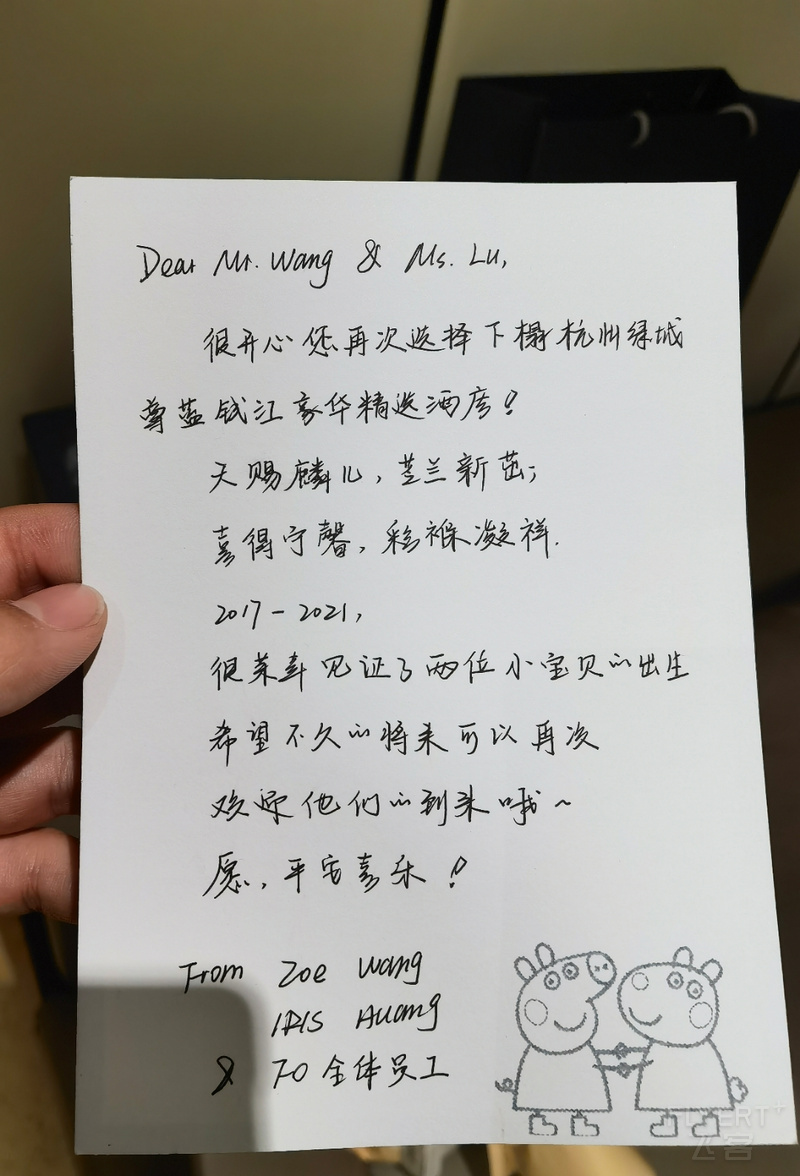 Dear Mr. Wang & Ms. Lu,
很开心您再次选择下榻杭州绿城
尊蓝钱江豪华精选酒店！
天赐麟儿，芝兰新茁；
喜得宁馨，彩褓凝祥.
2017-2021,
很荣幸见证了两位小宝贝的出生
希望不久的将来可以再次
欢迎他们的到来哦~
愿，平安喜乐！
From Zoe Wang
IRIS Huang
& FO 全体员工
FLYERT+
飞客